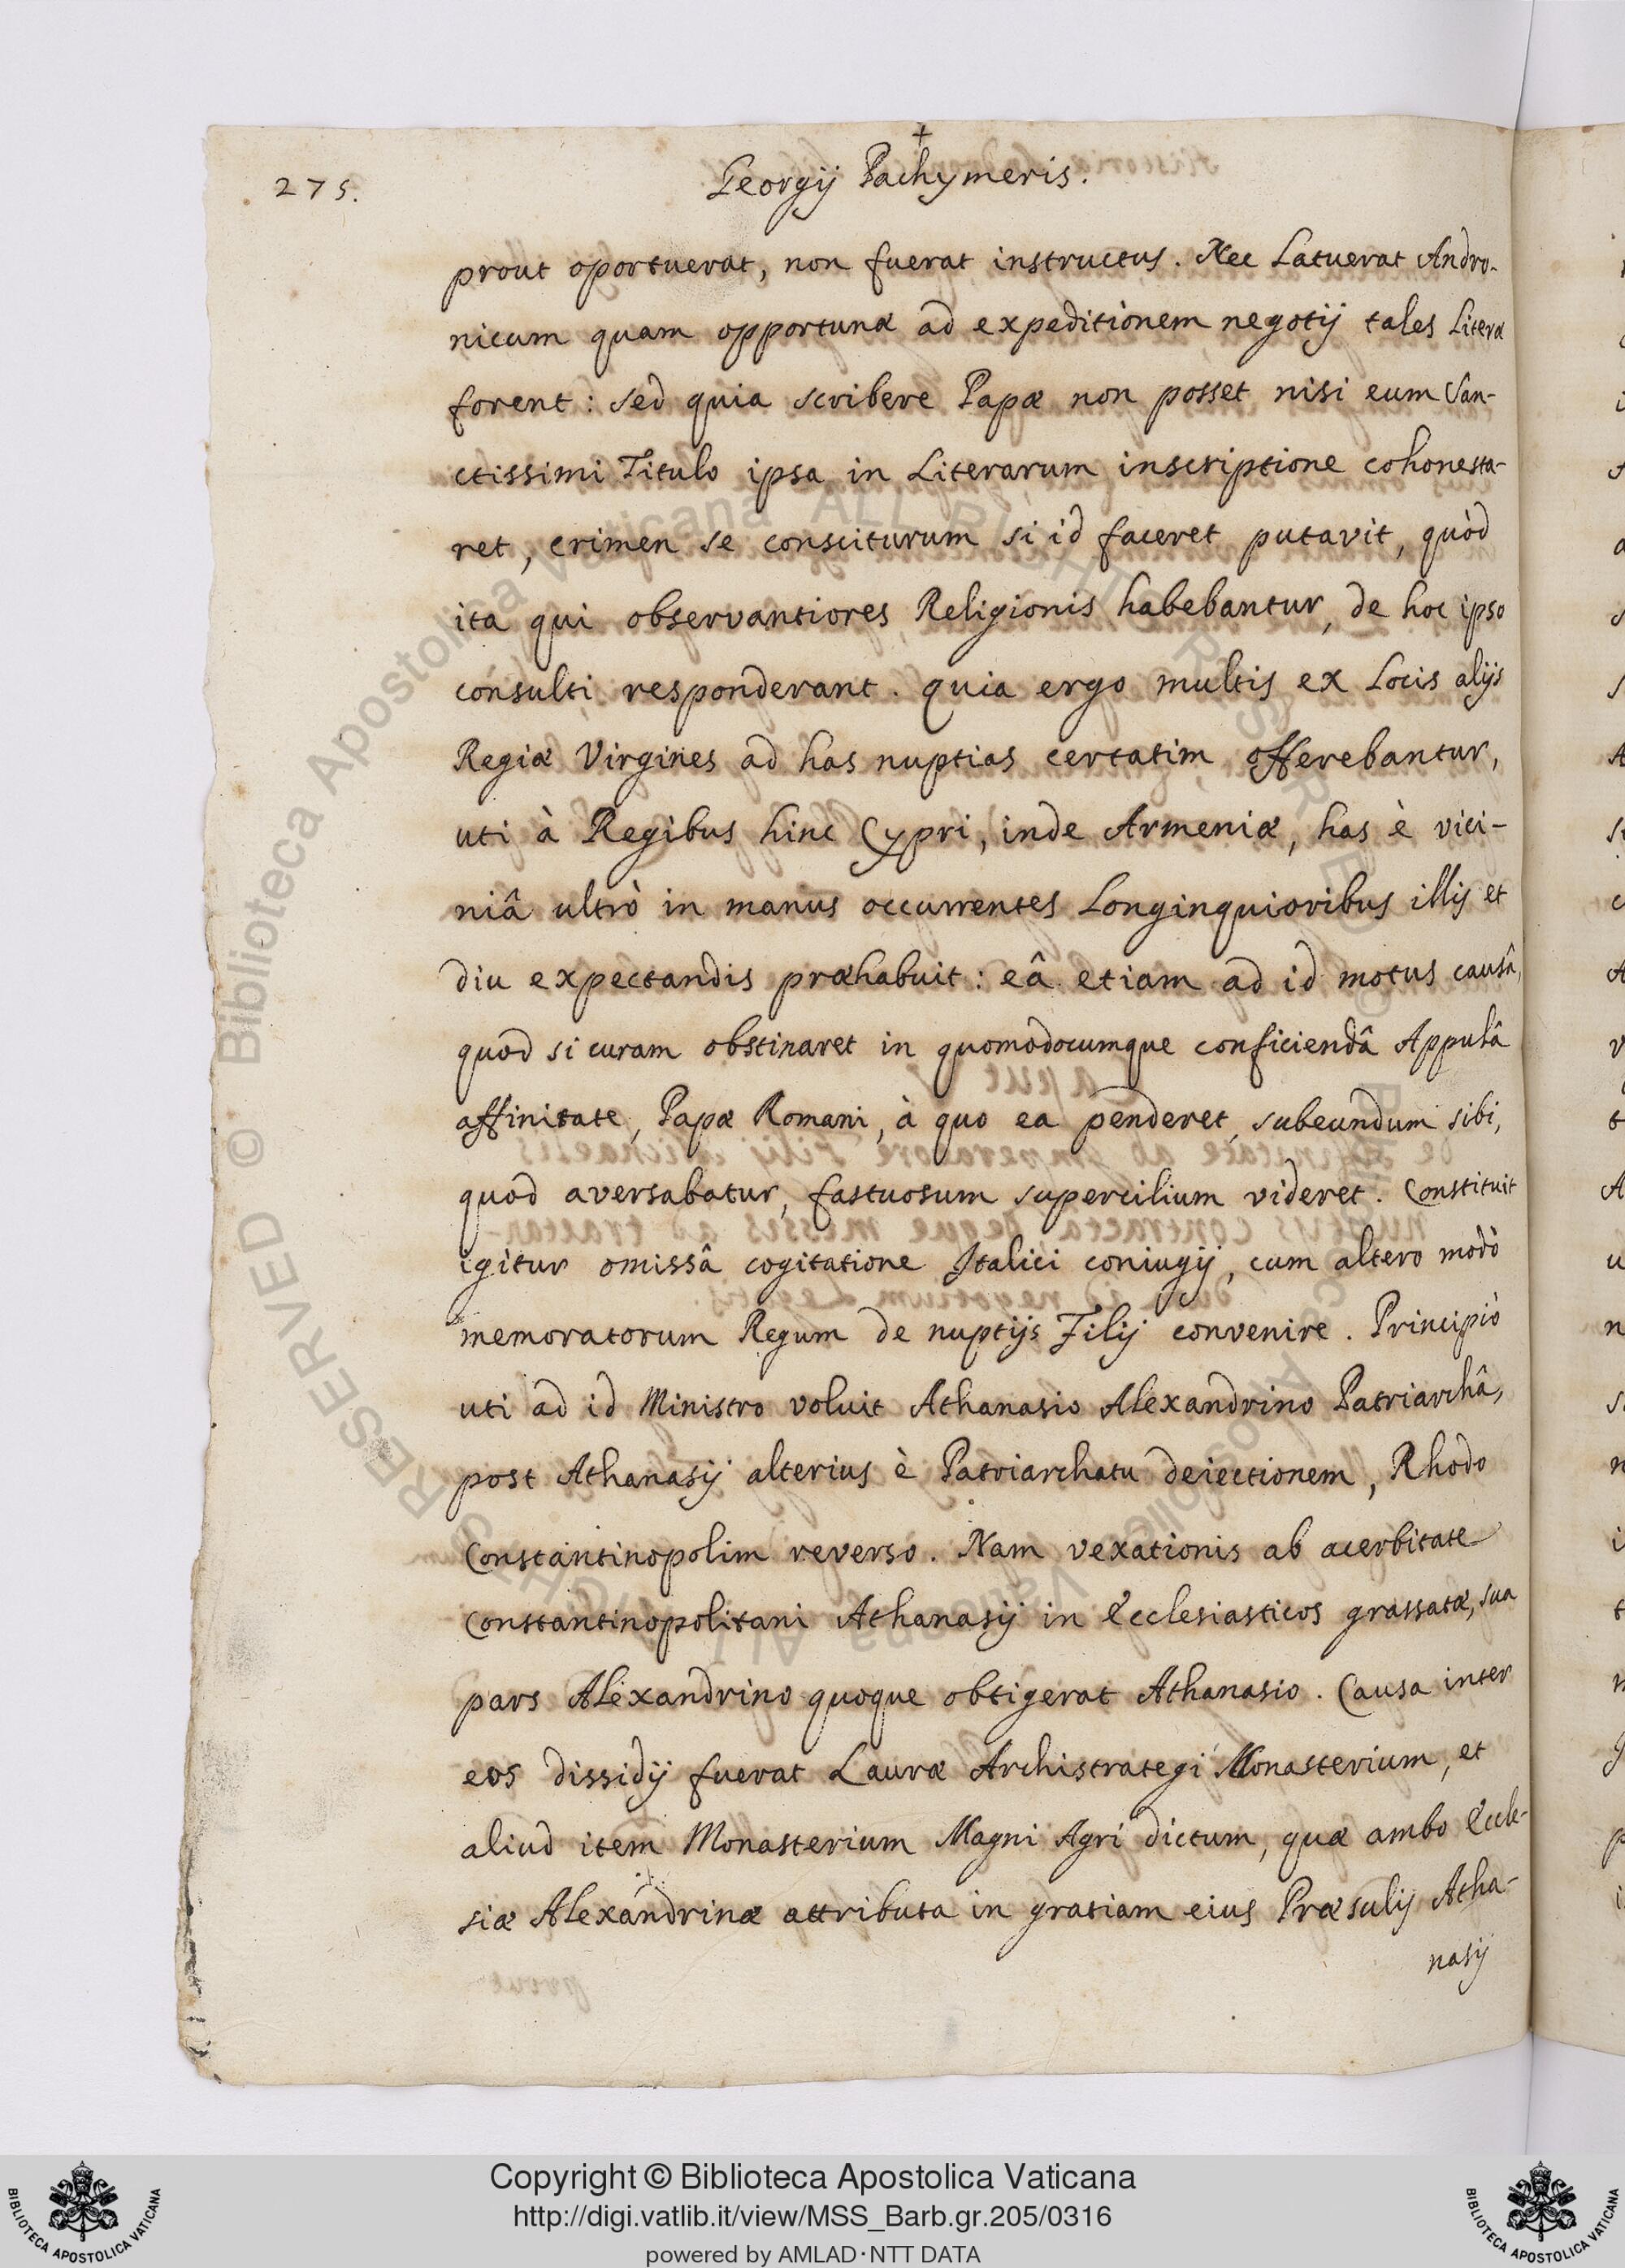 275.
+
Georgij Pachymeris.
prout oportuerat, non fuerat instructus. Nec Latuerat Andro-
nicum quam opportunæ ad expeditionem negotij tales Literæ
forent: sed quia scribere Papæ non posset nisi eum San-
ctissimi Titulo ipsa in Literarum inscriptione cohonesta-
ret, crimen se consciturum si id faceret putavit, quòd
ita qui observantiores Religionis habebantur, de hoc ipso
consulti responderant. quia ergo multis ex Locis alijs
Regiæ Virgines ad has nuptias certatim offerebantur,
uti à Regibus hinc Cypri, inde Armeniæ, has è vici-
niâ ultrò in manus occurrentes Longinquioribus illis et
diu expectandis præhabuit: eâ etiam ad id motus causâ,
quod si curam obstinaret in quomodocumque conficiendâ Appulâ
affinitate, Papæ Romani, à quo ea penderet, subeundum sibi,
quod aversabatur, fastuosum supercilium videret. Constituit
igitur omissâ cogitatione Italici coniugij, cum altero modò
memoratorum Regum de nuptijs Filij convenire. Principiò
uti ad id Ministro voluit Athanasio Alexandrino Patriarchâ,
post Athanasij alterius è Patriarchatu deiectionem, Rhodo
Constantinopolim reverso. Nam vexationis ab acerbitate
Constantinopolitani Athanasij in Ecclesiasticos grassatæ, sua
pars Alexandrino quoque obtigerat Athanasio. Causa inter
eos dissidij fuerat Lauræ Archistrategi Monasterium, et
aliud item Monasterium Magni Agri dictum, quæ ambo Eccle-
siæ Alexandrinæ attributa in gratiam eius Præsulis Atha-
nasij
© Biblioteca Apostolica Vaticana ALL RIGHTS RESERVED
Copyright © Biblioteca Apostolica Vaticana
http://digi.vatlib.it/view/MSS_Barb.gr.205/0316
powered by AMLAD·NTT DATA
BIBLIOTECA APOSTOLICA VATICANA
BIBLIOTECA APOSTOLICA VATICANA